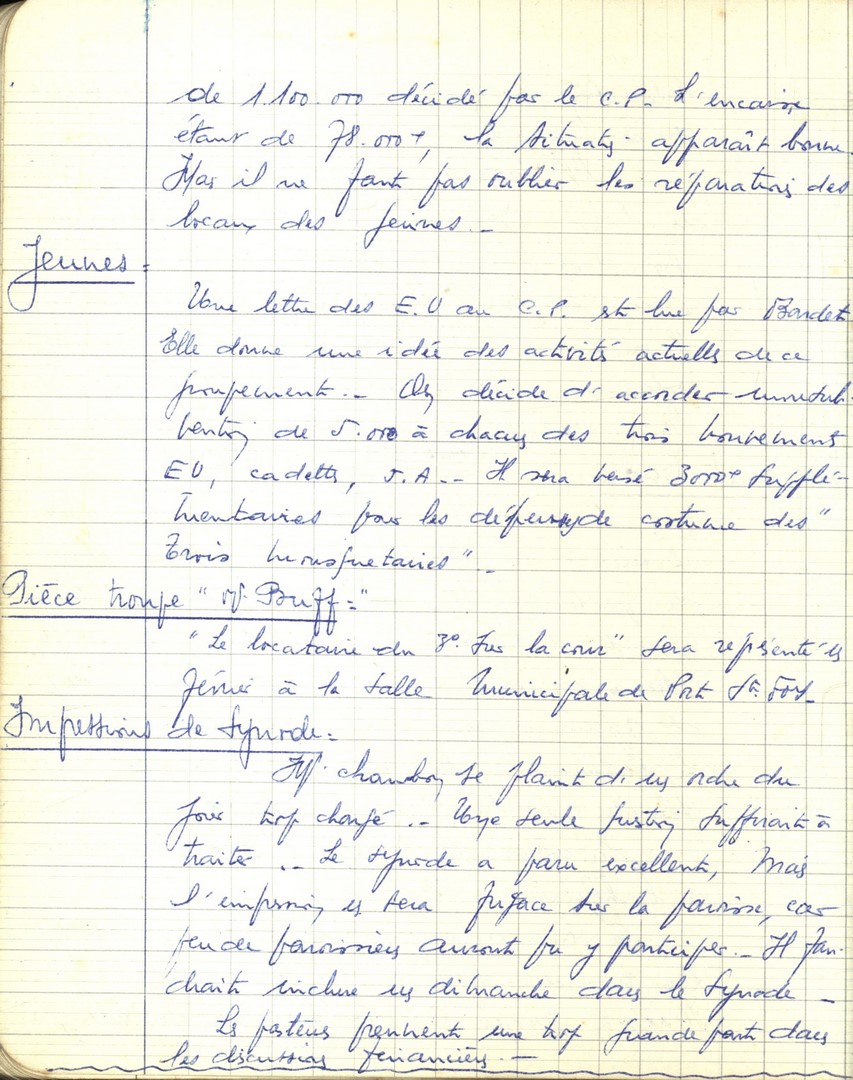 de 1.100.000 décidé par le C.P. L'encaisse
étant de 78.000 F, la situatº apparaît bonne.
Mais il ne faut pas oublier les réparations des
locaux des jeunes _
Jeunes :
Une lettre des E.U au C.P. est lue par Bardet
Elle donne une idée des activités actuelles de ce
groupement._ On décide d'accorder une sub-
vention de 5.000 à chacun des trois mouvements
EU, cadettes, J.A._ Il sera versé 3000 F supplé-
mentaires pour les dépenses de costume des "
Trois mousquetaires" _
Pièce troupe "  Buff="
"Le locataire du 3º sur la cour" sera représenté en
février à la salle Municipale de Port Ste Foy_
Impressions de Synode=
Mr chambon se plaint d'un ordre du
jour trop chargé ._ Une seule question suffirait à
traiter ._ Le synode a paru excellent, mais
l'impression en sera fugace sur la paroisse, car
peu de paroissiens auront pu y participer._ Il fau-
drait inclure un dimanche dans le Synode _
Les pasteurs prennent une trop grande part dans
les discussions financières._